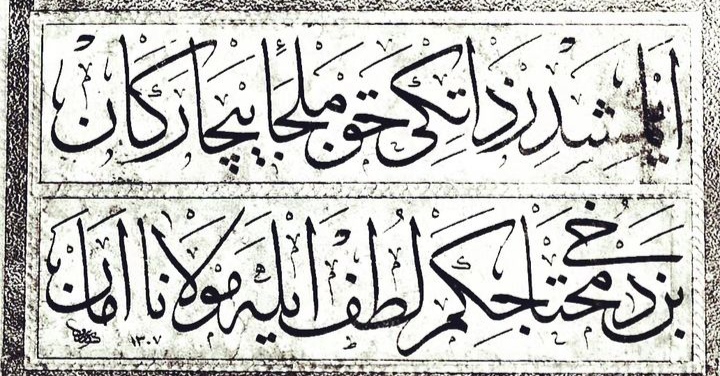 ایلمشدر ذاتکی حق ملجأ بیچارکان
بز دخی محتاجکم لطف ایله مولانا امان
١٣٠٧